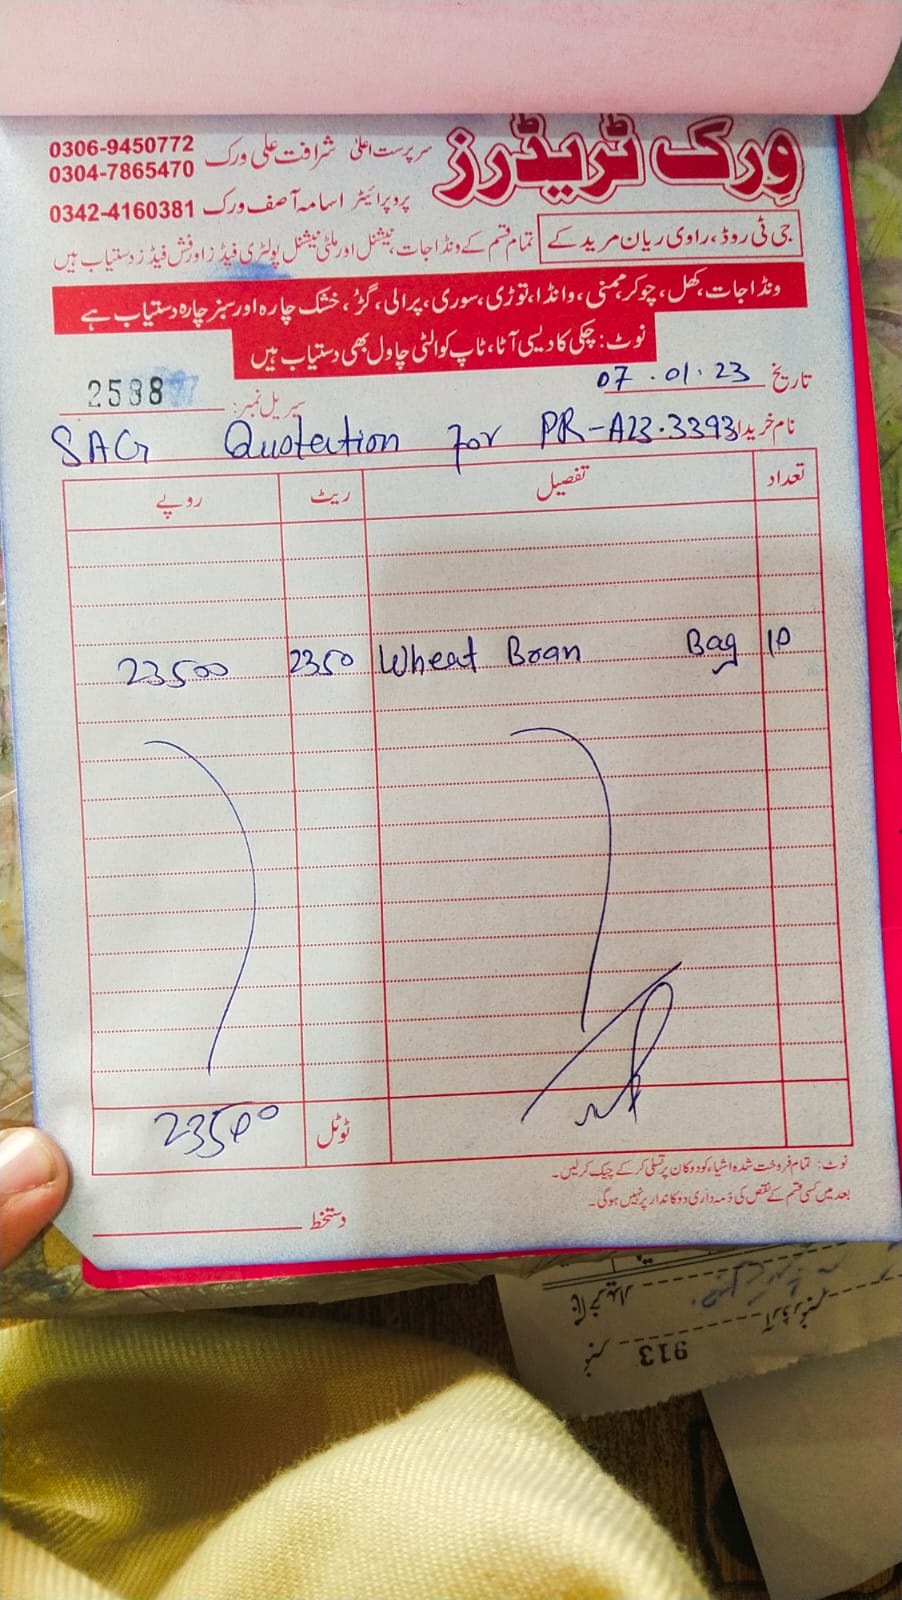 وِرک ٹریڈرز
سرپرست اعلیٰ شرافت علی ورک 0306-9450772
0304-7865470
پروپرائیٹر اسامہ آصف ورک 0342-4160381
جی ٹی روڈ، راوی ریان مریدکے
تمام قسم کے ونڈا جات، نیشنل اور ملٹی نیشنل پولٹری فیڈز اور فش فیڈز دستیاب ہیں
ونڈا جات، کھل، چوکر، ممنی، وانڈا، توڑی، سوری، پرالی، گڑ، خشک چارہ اور سبز چارہ دستیاب ہے
نوٹ: چکی کا دیسی آٹا، ٹاپ کوالٹی چاول بھی دستیاب ہیں
تاریخ 07.01.23
سیریل نمبر: 2588
نام خریدار SAG Quotation for PR-A23.3393
تعداد تفصیل ریٹ روپے
23500 2350 Wheat Bran Bag 10
ٹوٹل 23500
نوٹ: تمام فروخت شدہ اشیاء کو دوکان پر تسلی کر کے چیک کر لیں۔
بعد میں کسی قسم کے نقص کی ذمہ داری دوکاندار پر نہیں ہوگی۔
دستخط
نمبر 913